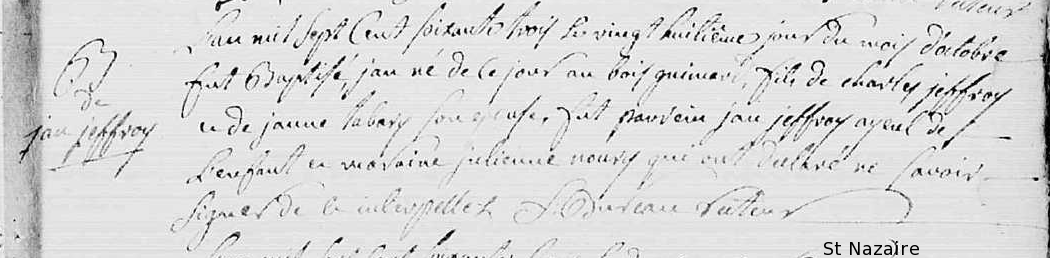 Lan mil sept Cent soixante trois le vingt huitième jour du mois d'octobre
B
fut Baptisé, jan né de ce jour au bois guimard, fils de charles jeffroy
de
jan jeffroy
e de janne tabary son epouse, fut parrein jan jeffroy ayeul de
L'enfant et maraine julienne noury qui ont déclaré ne savoir
signer de ce interpellez J. Bureau Recteur
St Nazaire